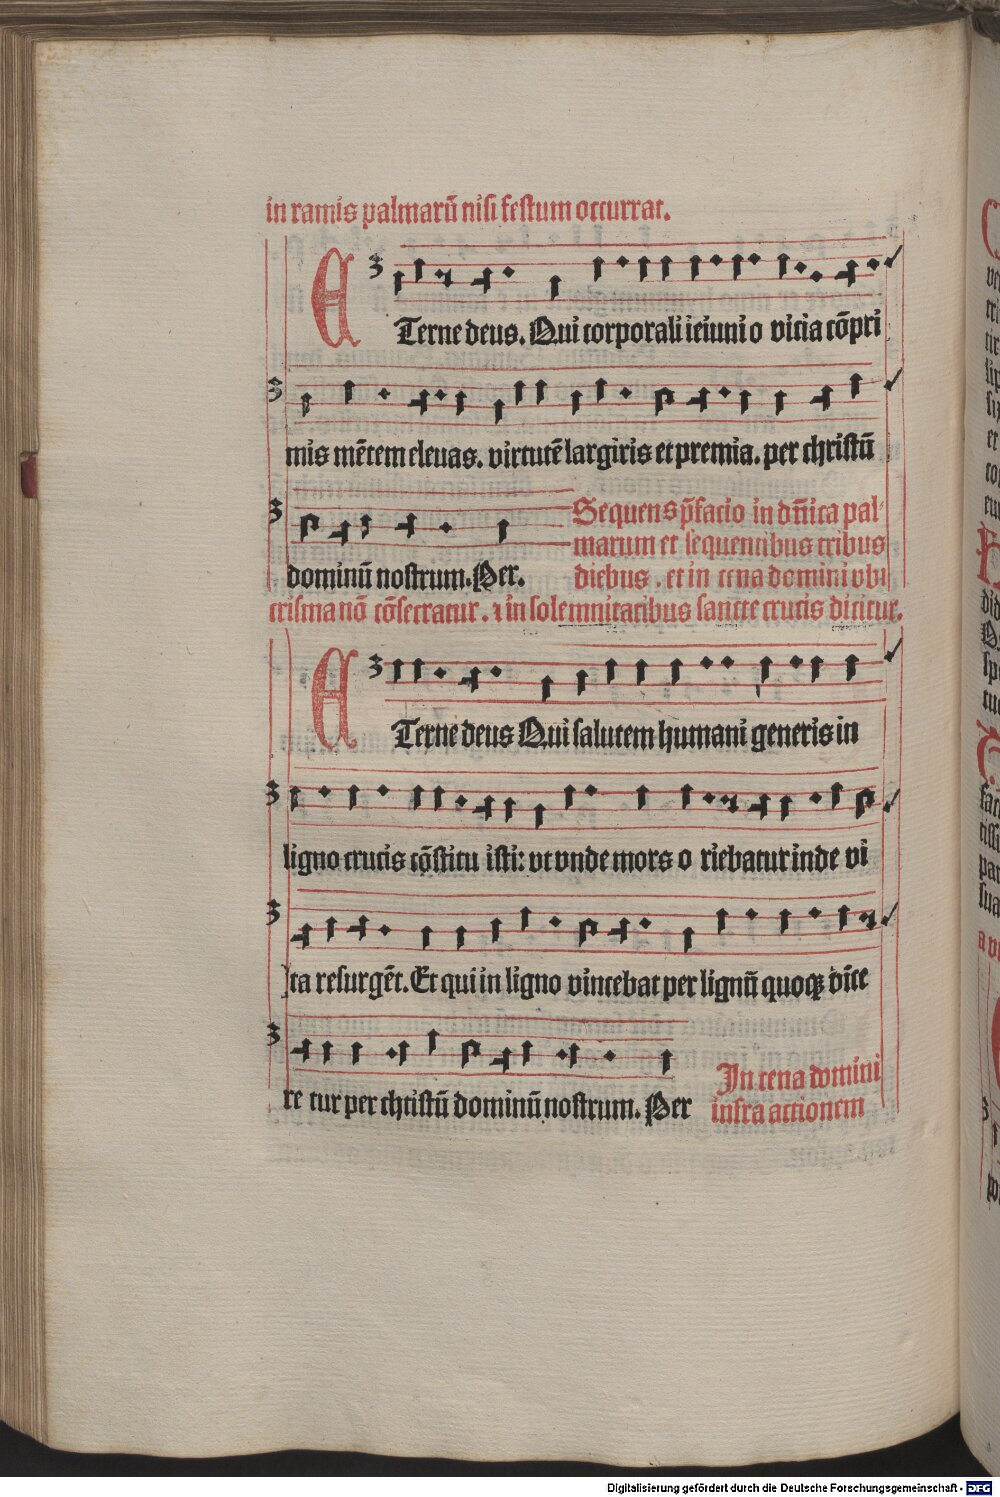 in ramis palmarū nisi festum occurrat.
ETerne deus. Qui corporali ieiuni o vicia cōpri
mis mētem eleuas. virtutē largiris et premia. per christū
dominū nostrum. Per.
Sequens p̄facio in dn̄ica pal-
marum et sequentibus tribus
diebus . et in cena domini vbi
crisma nō cōsecratur . ⁊ in solemnitatibus sancte crucis dicitur.
ETerne deus Qui salutem humani generis in
ligno crucis cōstitu isti: vt vnde mors o riebatur inde vi
ta resurgēt. Et qui in ligno vincebat per lignū quoqꝫ vīce
re tur per christū dominū nostrum. Per
In cena domini
infra actionem
Digitalisierung gefördert durch die Deutsche Forschungsgemeinschaft - DFG